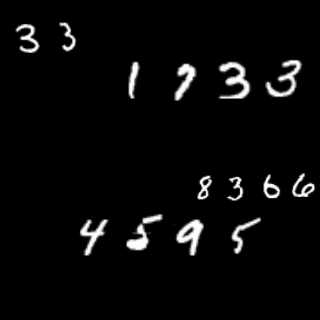 33
1933
8366
4595